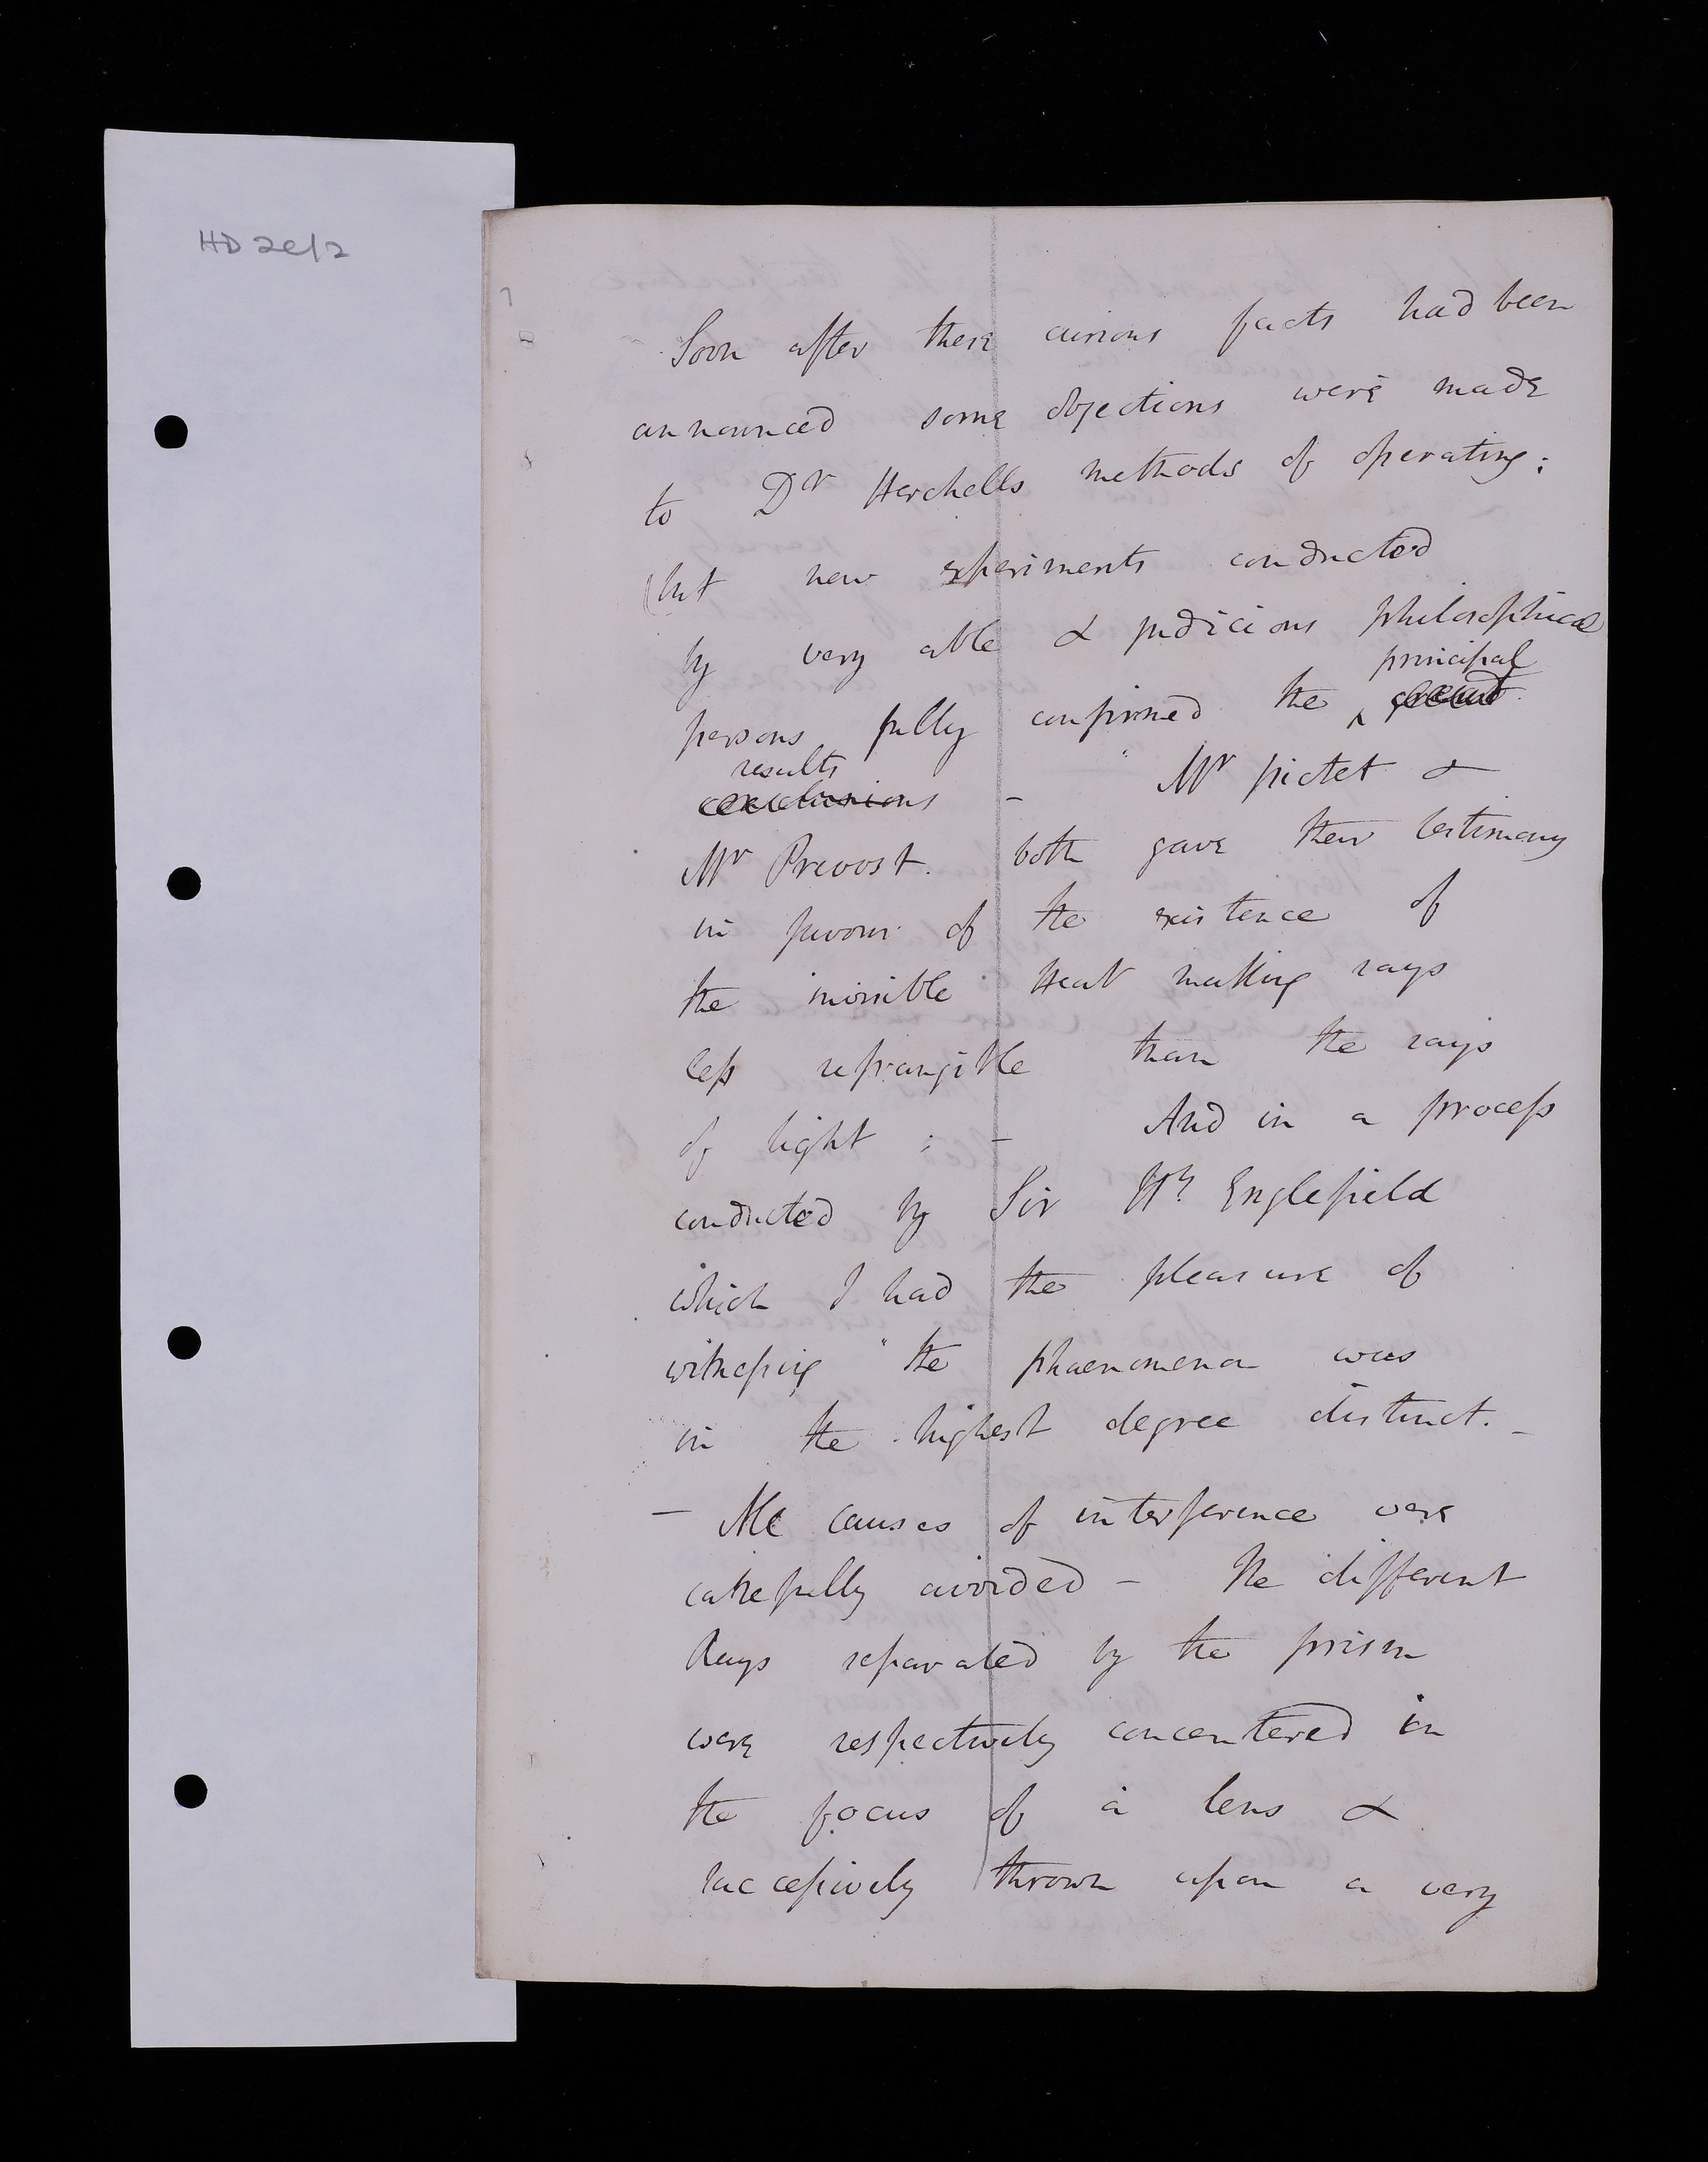 HD 2e/2
7
Soon after these curious facts had been
announced some objections were made
to Dr Herchells methods of operating;
(but new experiments conducted
by very able & judicious philosophical
principal
persons fully confirmed the
results
conclusions - Mr Pictet &
Mr Prevost. both gave their testimony
in favour of the existence of
the invisible Heat making rays
less refrangible than the rays
of light ; - And in a process
conducted by Sir Hy Englefield
which I had the pleasure of
witnessing the phaenomena was
in the highest degree distinct. -
- All causes of interference were
carefully avoided - The different
Rays separated by the prism
were respectively concentered in
the focus of a lens &
successively thrown upon a very